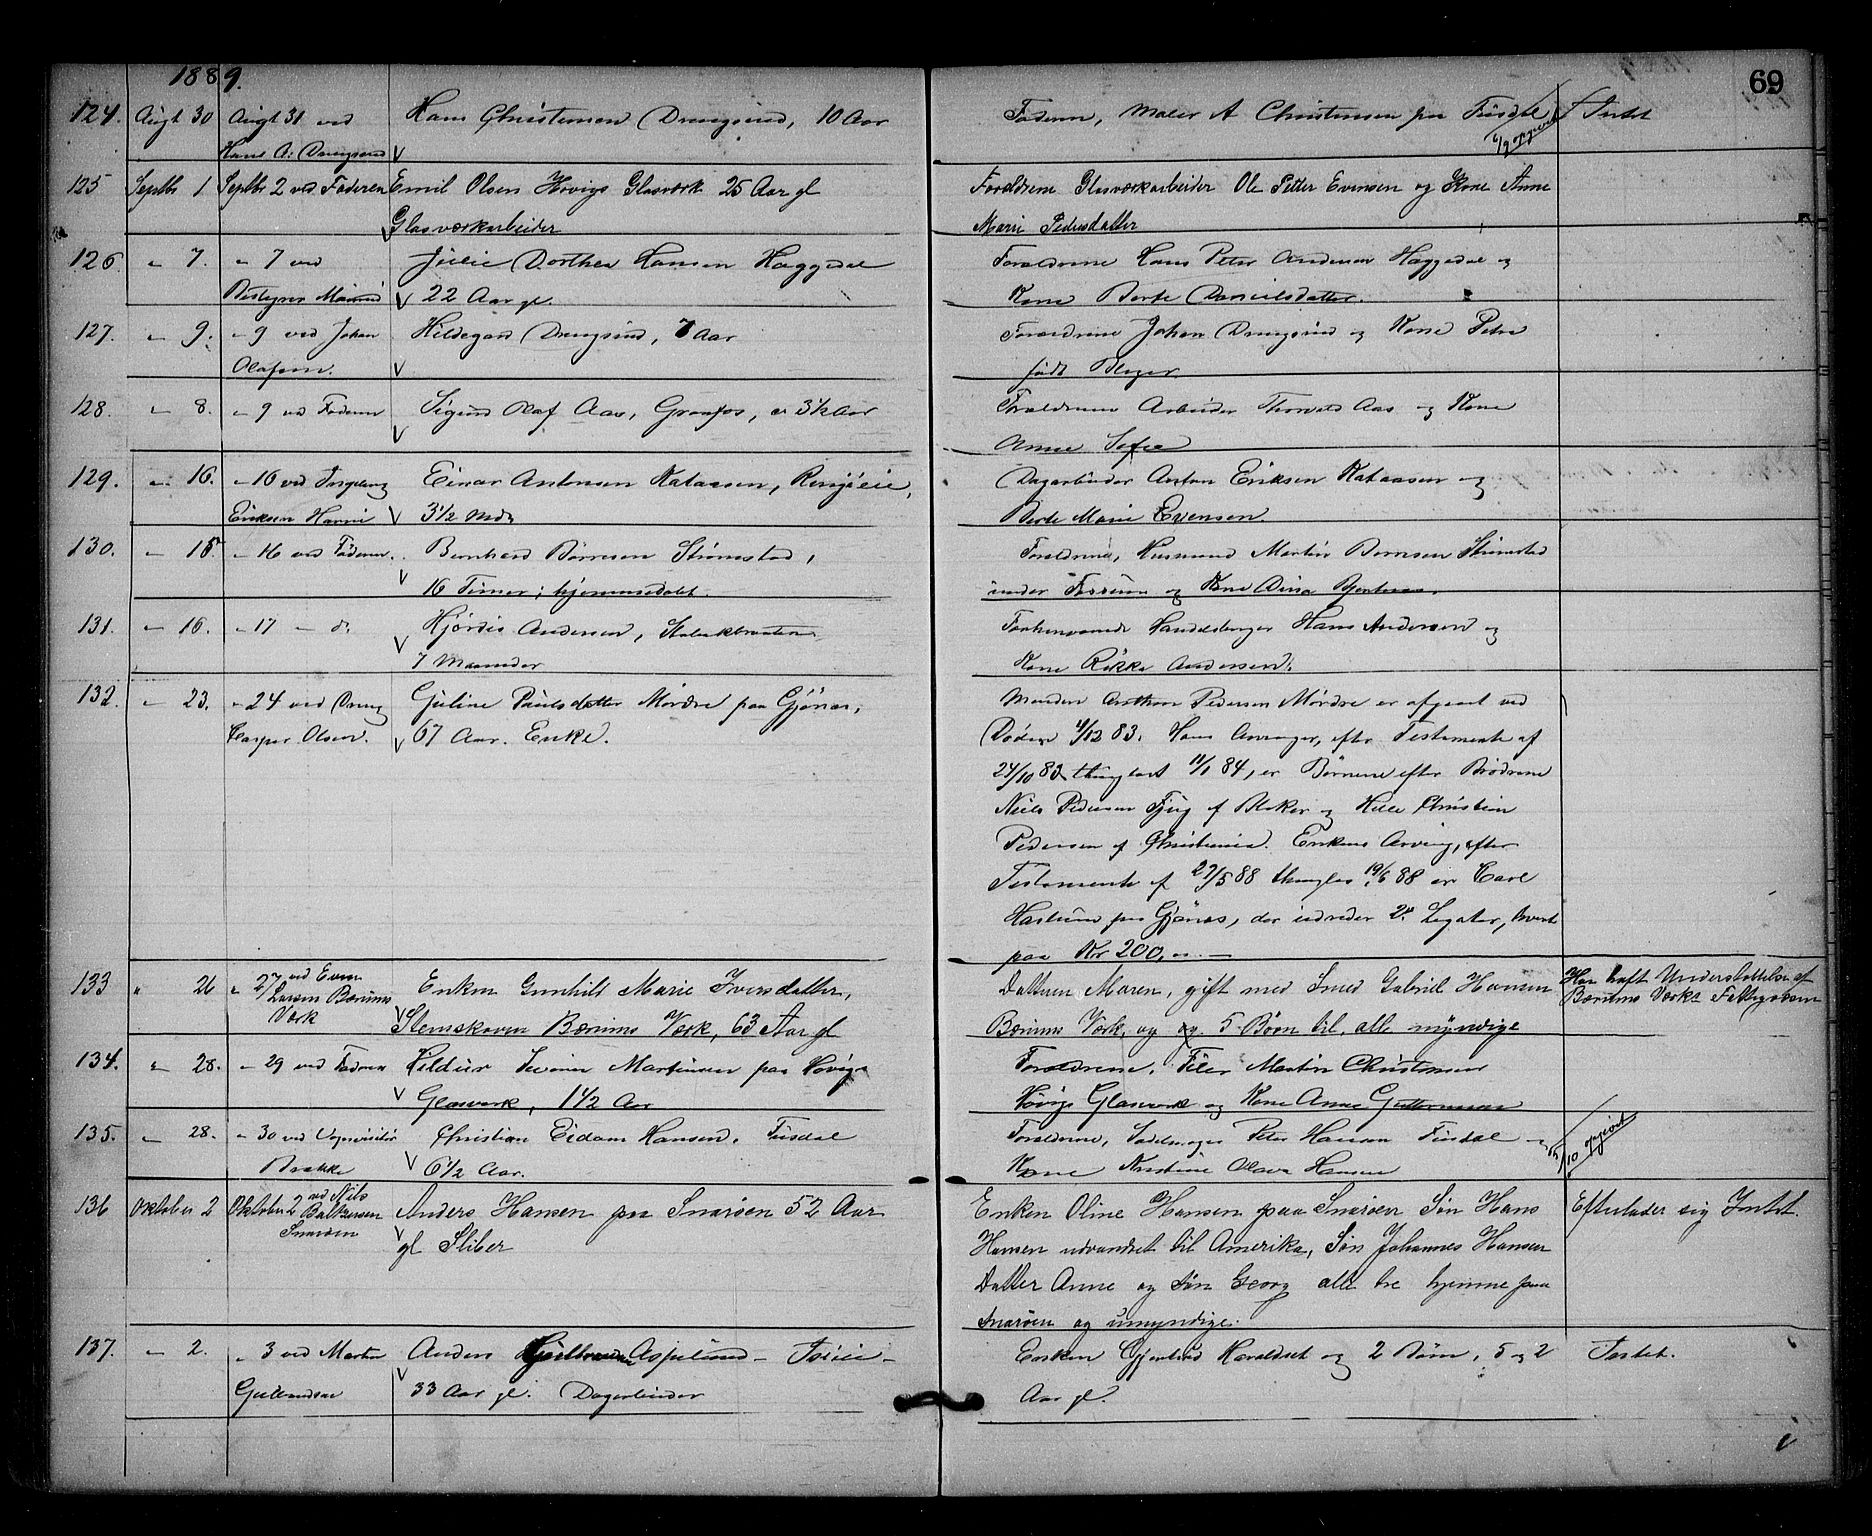 1889.
69
124. Augt 30 Augt 31 ved Hans Christensen Drengsrud, 10 Aar
Hans A: Drengsrud
Faderen, Maler A Christensen paa Intet
1/9 opgivet
125 Septbr 1 Septbr 2 ved Faderen Emil Olsen Høvigs Glasværk 25 Aar gl
Glasværkarbeider
Forældrene Glasværkarbeider Ole Petter Evensen og Kone Anne
Marie Pedersdatter
126 " 7. " 7 ved Julie Dorthea Hansen Haggedal
22 Aar gl.
Forældrene Hans Peter Andersen Haggedal og
Kone Berte Danielsdatter.
127. " 9. " 9 ved Johan Hildegard Drengsrud, 7 Aar
Olafsen.
Forældrene Johan Drengsrud og Kone Petra
født
128. " 8. " 9 ved Faderen Sigurd Olaf Aas, Granfos, 3½ Aar
Forældrene Arbeider Thorvald Aas og Kone
Anne Sofie
129. " 16. " 16 ved Einar Antonsen Kataasen,
Eriksen 3½ Mdr
Dagarbeider Anton Eriksen Kataasen og
Berte Marie Evensen.
130. " 15 " 16 ved Faderen. Bernhard Børresen Strømstad,
16 Timer; hjemmedøbt.
Forældrene, Husmand Martin Børresen Strømstad
under Fossum og Kone
131. " 16. " 17 — do Hjørdis Andersen,
7 Maaneder
Forhenværende Handelsborger Hans Andersen og
Kone Rikka Andersen.
132. " 23. " 24 ved Guline Paulsdatter Mørdre paa Gjønnæs,
Casper Olsen. 67 Aar. Enke.
Manden Anthon Pedersen Mørdre er afgaaet ved
Døden 4/12 83. Hans Arvinger, efter Testamente af
24/10 83 thinglæst 11/1 84, er Børnene efter Brødrene
Niels Pedersen af Blaker og Helle Christian
Pedersen af Christiania. Enkens Arving, efter
Testamente af 27/5 88 thinglæst 19/6 88 er Carl
paa Gjønnæs, der udreder 2de Legater, hvert
paa Kr 200,00.—
133 " 26 " 27 ved Even Enken Gunhild Marie Iversdatter,
Larsen Bærums
Værk Stenskoven Bærums Værk, 63 Aar gl
Datteren Maren, gift med Smed Gabriel Hansen
Bærums Værk, og og 5 Børn til, alle myndige
Har havt Understøttelse af
Bærums Værks Fattigvæsen
134. " 28. " 29 ved Faderen Hildur Martinsen paa Høvigs
Glasværk, 1½ Aar
Forældrene, Martin Christensen
Høvigs Glasværk og Kone Anne Guttormsen
135. " 28. " 30 ved Christian Eidam Hansen.
Brække 6½ Aar.
Forældrene, Peter Hansen og
Kone Kristine Olava Hansen
5/10 opgivet
136 Oktober 2 Oktober 2 ved Nils Anders Hansen paa Snarøen 52 Aar
Baltzersen
Snarøen gl Sliber
Enken Oline Hansen paa Snarøen Søn Hans
Hansen udvandret til Amerika, Søn Johannes Hansen
Datter Anne og Søn Georg alle tre hjemme paa
Snarøen og umyndige.
Efterlader sig Intet.
137. " 2. " 3 ved Morten Anders Aspelund —
Gulbrandsen 33 Aar gl. Dagarbeider
Enken Haraldsdt og 2 Børn, 5 og 2 Intet.
Aar gl.